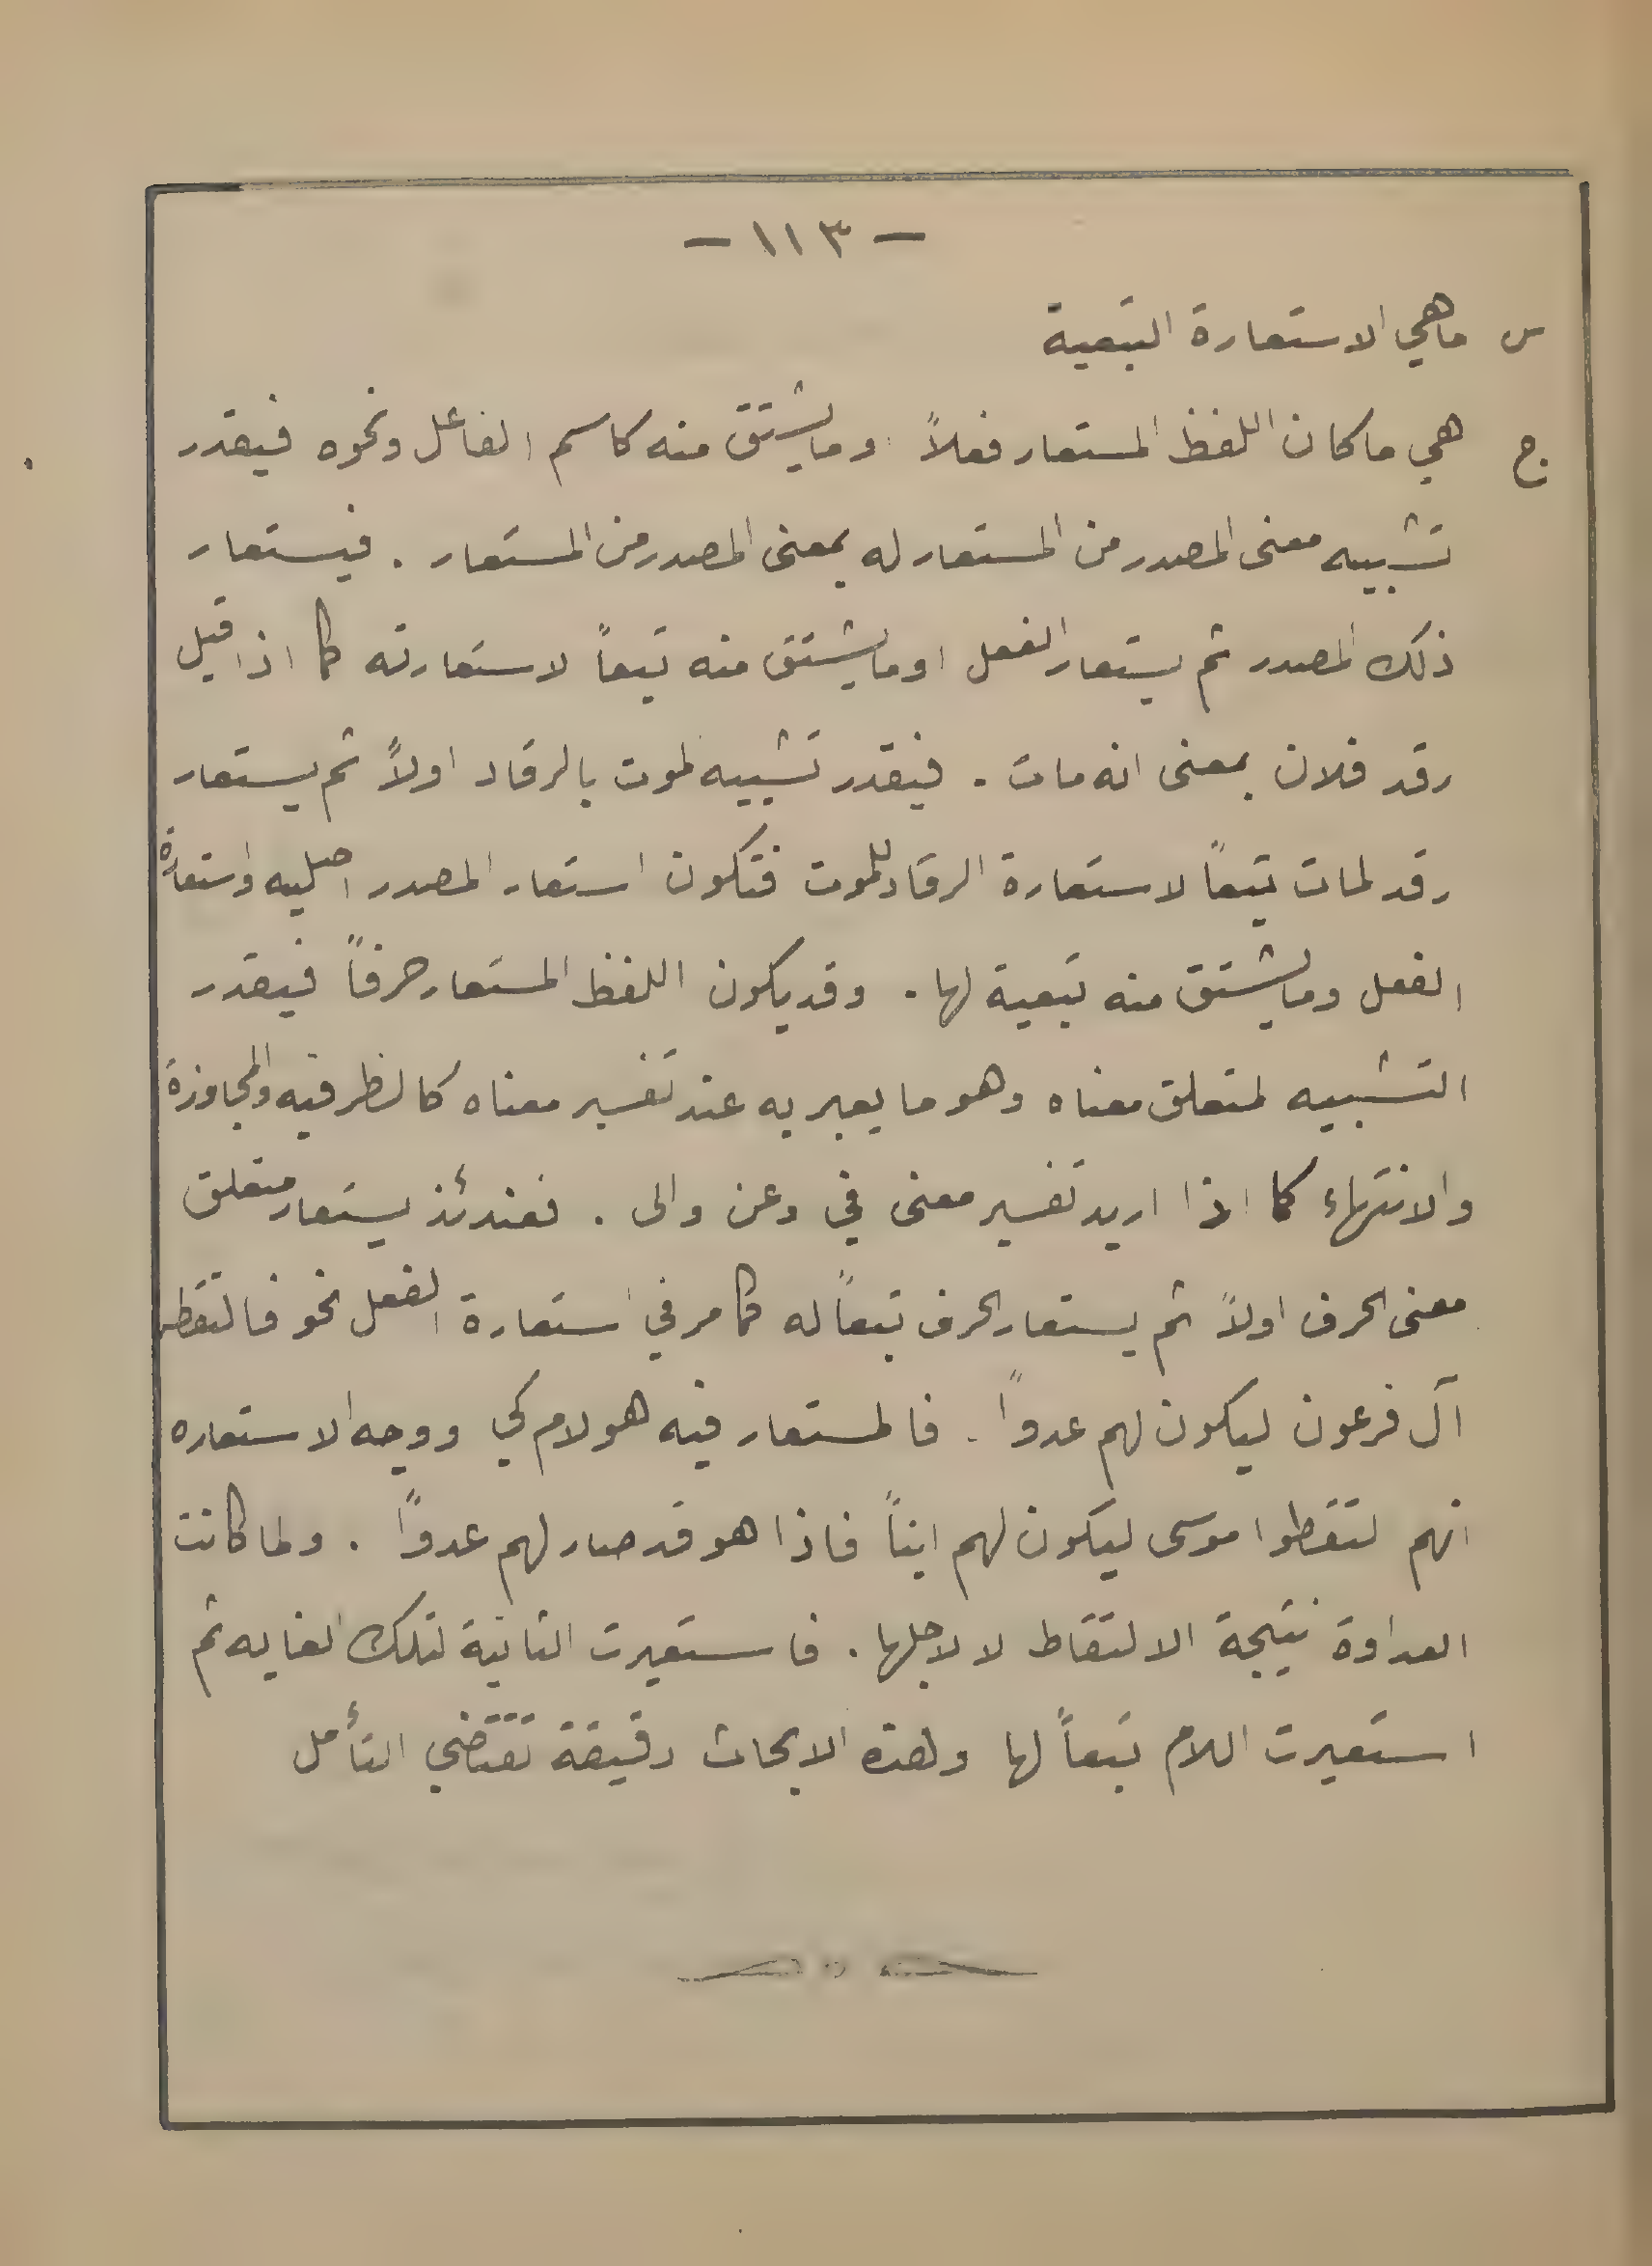 – ١١٣ –
س ماهي الاستعارة التبعية
ج هي ما كان اللفظ المستعار فعلاً وما يشتق منه كاسم الفاعل ونحوه فيقدر
تشبيه معنى المصدر من المستعار له بمعنى المصدر من المستعار . فيستعار
ذلك المصدر ثم يستعار الفعل اوما يشتق منه تبعاً لاستعارته كما اذا قيل
رقد فلان بمعنى انه مات . فيقدر تشبيه لموت بالرقاد اولاً ثم يستعار
رقد لمات تبعاً لاستعارة الرقاد للموت فتكون استعار المصدر اصليه واستعارة
الفعل وما يشتق منه تبعية لها . وقد يكون اللفظ المستعار حرفاً فيقدر
التشبيه لمتعلق معناه وهو ما يعبر به عند تفسير معناه كالظرفيه والمجاوزة
والانتهاء كما اذا اريد تفسير معنى في وعن والى . فعندئذ يستعار متعلق
معنى الحرف اولاً ثم يستعار الحرف تبعاً له كما مر في استعارة الفعل نحو فالتقطه
آل فرعون ليكون لهم عدواً . فالمستعار فيه هو لام كي ووجه الاستعاره
انهم لتقطوا موسى ليكون لهم ابناً فاذا هو قد صار لهم عدواً . ولما كانت
العداوة نتيجة الالتقاط لا لاجلها . فاستعيرت الثانية لتلك الغايه ثم
استعيرت اللام تبعاً لها وهذه الابحاث دقيقة تقتضي التأمل